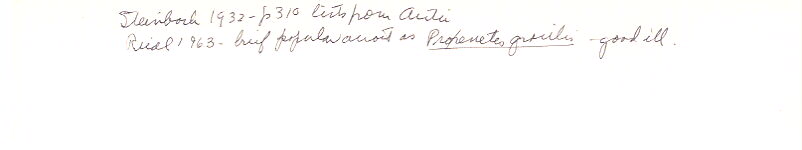 Steinbach 1932 - p 310 lists from
Riedl 1963 - brief popular account as Propeneta gracilis - good ill.